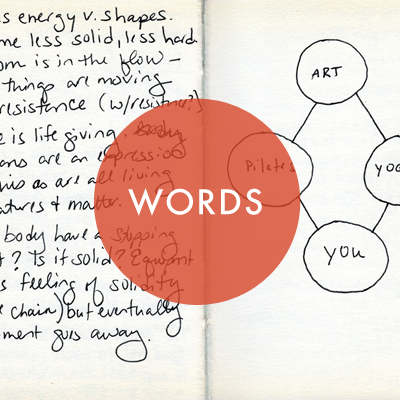 s energy v. shapes.
me less solid, less hard.
om is in the flow –
things are moving
resistance (w/
e is life giving.
ons are an expression
his as are all living
atures & matter.
body have a stopping
t? Is it solid? Equipment
s feeling of solidity
e chain) but eventually
ment goes away.
WORDS
ART
Pilates
YOG
YOU